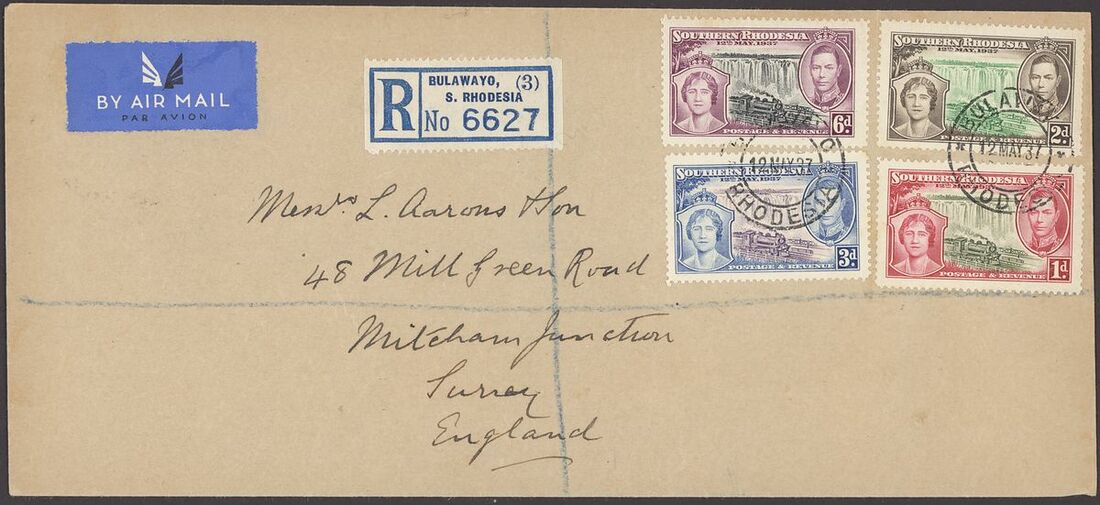 BY AIR MAIL
PAR AVION
R
BULAWAYO, (3)
S. RHODESIA
No 6627
SOUTHERN RHODESIA
12TH MAY, 1937
6d.
POSTAGE & REVENUE
SOUTHERN RHODESIA
12TH MAY, 1937
2d.
POSTAGE & REVENUE
SOUTHERN RHODESIA
12TH MAY, 1937
3d.
POSTAGE & REVENUE
SOUTHERN RHODESIA
12TH MAY, 1937
1d.
POSTAGE & REVENUE
12 MAY 37
RHODESIA
12 MAY 37
Messrs L. Aarons & Son
48 Mill Green Road
Mitcham Junction
Surrey
England